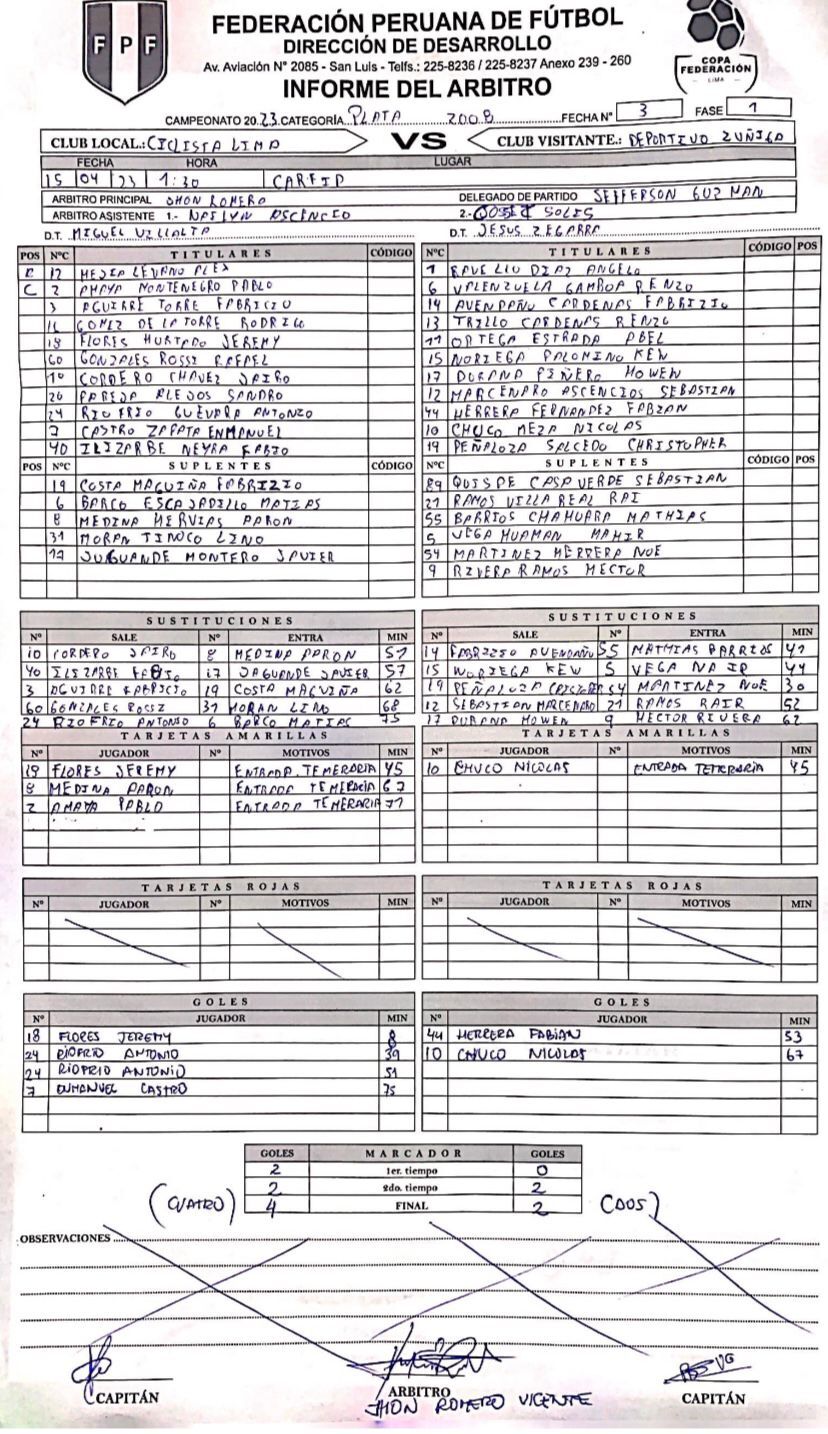 FPF
FEDERACIÓN PERUANA DE FÚTBOL
DIRECCIÓN DE DESARROLLO
Av. Aviación N° 2085 - San Luis - Telfs.: 225-8236 / 225-8237 Anexo 239 - 260
INFORME DEL ARBITRO
COPA
FEDERACIÓN
LIMA
CAMPEONATO 2023 CATEGORÍA PLATA 2008 FECHA N° 3 FASE 1
CLUB LOCAL.: CICLISTA LIMA VS CLUB VISITANTE.: DEPORTIVO ZUÑIGA
FECHA HORA LUGAR
15 04 23 1:30 CAREIP
ARBITRO PRINCIPAL JHON ROMERO DELEGADO DE PARTIDO JEFFERSON GUZMAN
ARBITRO ASISTENTE 1.- ASCENCIO 2.- JOSE SOLIS
D.T. MIGUEL VILLALTA D.T. JESUS ZEGARRA
POS N°C TITULARES CÓDIGO N°C TITULARES CÓDIGO POS
12 MEJIA LEVANO ALEX 1 DIAZ ANGELO
C 2 AMAYA MONTENEGRO PABLO 6 VALENZUELA GAMBOA RENZO
3 AGUIRRE TORRE FABRICIO 14 AVENDAÑO CARDENAS FABRIZIO
16 GOMEZ DE LA TORRE RODRIGO 13 TRILLO CARDENAS RENZO
18 FLORES HURTADO JEREMY 11 ORTEGA ESTRADA ABEL
60 GONZALES ROSSI RAFAEL 15 NORIEGA PALOMINO KEW
10 CORDERO CHAVEZ JAIRO 17 DURAND PIÑERO HOWEN
26 PAREJA ALEJOS SANDRO 12 MARCENARO ASCENCIOS SEBASTIAN
24 RIOFRIO GUEVARA ANTONIO 44 HERRERA FERNANDEZ FABIAN
7 CASTRO ZAPATA ENMANUEL 10 CHUCO MEZA NICOLAS
40 ILIZARBE NEYRA FABIO 19 PEÑALOZA SALCEDO CHRISTOPHER
POS N°C SUPLENTES CÓDIGO N°C SUPLENTES CÓDIGO POS
19 COSTA MAGUIÑA FABRIZIO 89 QUISPE CASAVERDE SEBASTIAN
6 BARCO ESCAJADILLO MATIAS 21 RAMOS VILLA REAL RAI
8 MEDINA HERVIAS AARON 55 BARRIOS CHAHUARA MATHIAS
31 MORAN TINOCO LINO 5 VEGA HUAMAN MAHIR
17 JUGUANDE MONTERO JAVIER 54 MARTINEZ HERRERA NOE
9 RIVERA RAMOS HECTOR
SUSTITUCIONES SUSTITUCIONES
N° SALE N° ENTRA MIN N° SALE N° ENTRA MIN
10 CORDERO JAIRO 8 MEDINA AARON 57 14 FABRIZIO AVENDAÑO 55 MATHIAS BARRIOS 41
40 ILIZARBE FABIO 17 JAGUANDE JAVIER 57 15 NORIEGA KEW 5 VEGA 44
3 AGUIRRE FABRICIO 19 COSTA MAGUIÑA 62 19 PEÑALOZA 54 MARTINEZ NOE 30
60 GONZALES ROSSI 31 MORAN LINO 68 12 SEBASTIAN MARCENARO 21 RAMOS RAIR 52
24 RIOFRIO ANTONIO 6 BARCO MATIAS 75 17 DURAND HOWEN 9 HECTOR RIVERA 62
TARJETAS AMARILLAS TARJETAS AMARILLAS
N° JUGADOR N° MOTIVOS MIN N° JUGADOR N° MOTIVOS MIN
18 FLORES JEREMY ENTRADA TEMERARIA 45 10 CHUCO NICOLAS ENTRADA TEMERARIA 45
8 MEDINA AARON ENTRADA TEMERARIA 67
2 AMAYA PABLO ENTRADA TEMERARIA 77
TARJETAS ROJAS TARJETAS ROJAS
N° JUGADOR N° MOTIVOS MIN N° JUGADOR N° MOTIVOS MIN
GOLES GOLES
N° JUGADOR MIN N° JUGADOR MIN
18 FLORES JEREMY 8 44 HERRERA FABIAN 53
24 RIOFRIO ANTONIO 39 10 CHUCO NICOLAS 67
24 RIOFRIO ANTONIO 51
7 ENMANUEL CASTRO 75
GOLES MARCADOR GOLES
2 1er. tiempo 0
2 2do. tiempo 2
(CUATRO) 4 FINAL 2 (DOS)
OBSERVACIONES
CAPITÁN ARBITRO CAPITÁN
JHON ROMERO VICENTE